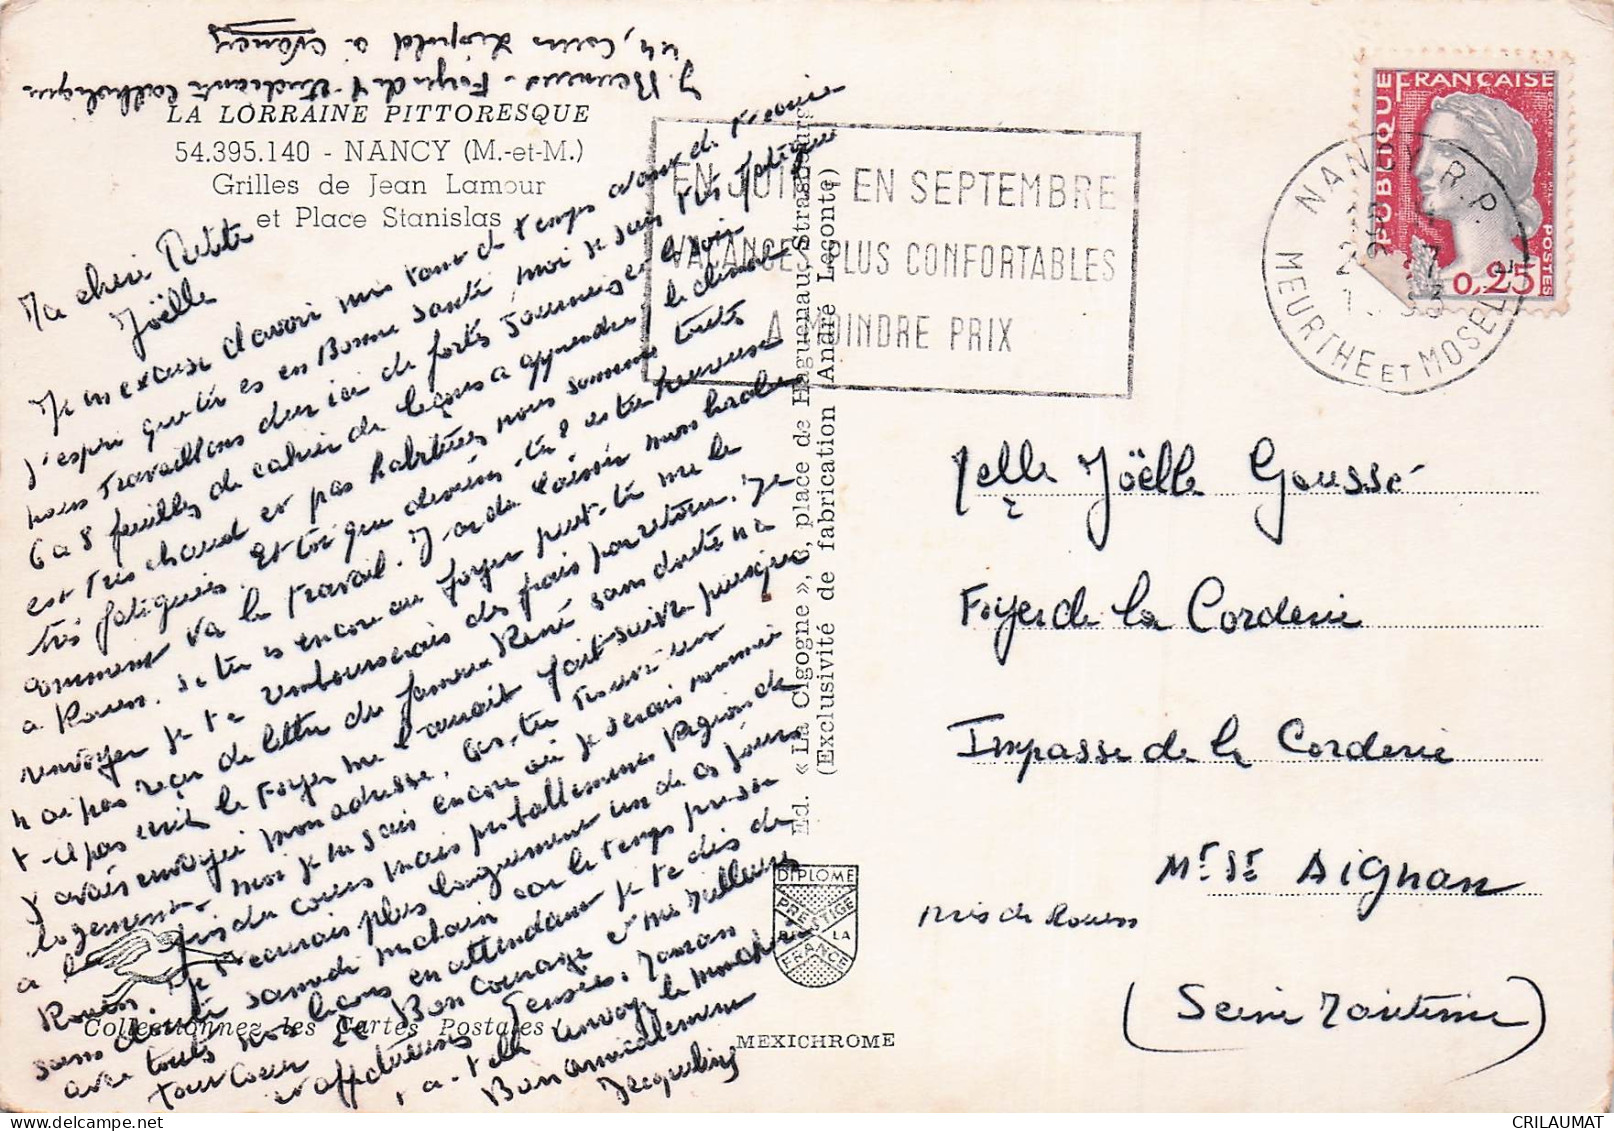 44, Cours Léopold à Nancy
J. - Foyer de l'Etudiante Catholique
LA LORRAINE PITTORESQUE
54.395.140 - NANCY (M.-et-M.)
Grilles de Jean Lamour
et Place Stanislas
Ma chère Petite
Joëlle
Je m'excuse d'avoir mis tant de temps avant de t'écrire
j'espère que tu es en Bonne santé, moi je suis très fatiguée
nous travaillons dur ici de fortes journées et le soir
6 a 8 feuilles de cahier de leçons a apprendre, le climat
est très chaud et pas habituées nous sommes toutes
très fatiguées. Et toi que deviens-tu ? es tu heureuse
comment va le travail. J'ai du laisser mon
a Rouen. Si tu es encore au foyer peut-tu me le
renvoyer je te rembourserais des frais par retour. Je
n'ai pas reçu de lettre du fameux René sans doute n'a
t-il pas écrit le Foyer me l'aurait fait suivre puisque
j'avais envoyé mon adresse. As-tu trouvé un
logement. Moi je ne sais encore où je serais nommée
a l'issu du cours mais probablement région de
Rouen. Je t'écrirais plus longuement un de ces jours
sans doute samedi prochain car le temps presse
avec toutes nos leçons en attendant je te dis de
tout coeur Bon courage et mes meilleures
et affectueuses Pensées. Maman
t'a-t-elle envoyé le
Bon amicalement
Jacqueline
Collectionnez les Cartes Postales
Ed. « La Cigogne », place de Haguenau, Strasbourg
(Exclusivité de fabrication André Leconte)
DIPLOME
PRESTIGE
DE LA
FRANCE
MEXICHROME
EN JUIN - EN SEPTEMBRE
VACANCES PLUS CONFORTABLES
A MOINDRE PRIX
NANCY R.P.
MEURTHE ET MOSELLE
REPUBLIQUE FRANÇAISE
0,25
POSTES
Melle Joëlle Gousse
Foyer de la Corderie
Impasse de la Corderie
Mt St Aignan
près de Rouen
(Seine Maritime)
CRILAUMAT